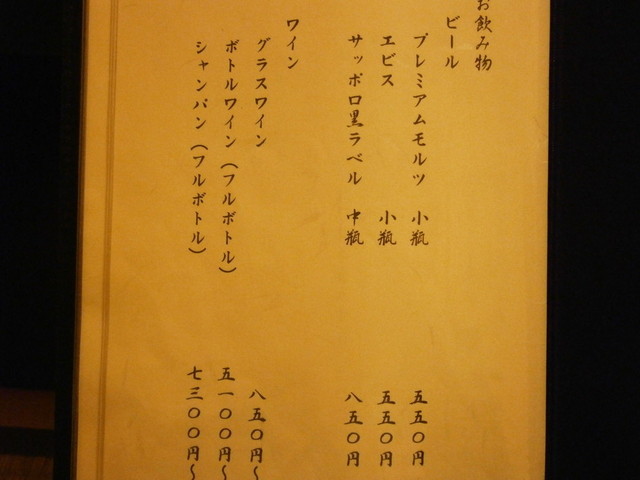 お飲み物
ビール
プレミアムモルツ 小瓶 五五〇円
エビス 小瓶 五五〇円
サッポロ黒ラベル 中瓶 八五〇円
ワイン
グラスワイン 八五〇円~
ボトルワイン(フルボトル) 五一〇〇円~
シャンパン(フルボトル) 七三〇〇円~